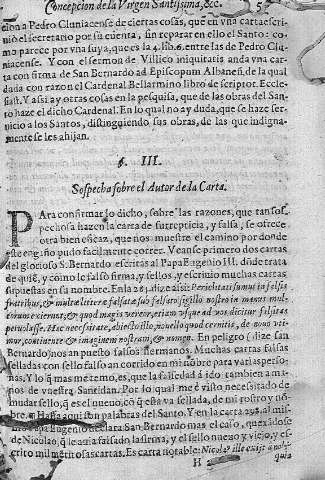 Concepcion de la Virgen Santissima, &c. 5
cion a Pedro Cluniacense de ciertas cosas, que en vna carta escriui
o el secretario por su cuenta, sin reparar en ello el Santo: co
mo parece por vna suya, que es la 4. lib. 6. entre las de Pedro Clu
niacense. Y con el sermon de Villico iniquitatis anda vna car
ta con firma de San Bernardo ad Episcopum Albanes, de la qual
dada con razon el Cardenal Bellarmino libro de scriptor. Eccle
siast. Y assi ay otras cosas en la pesquisa, que de las obras del San
to haze el dicho Cardenal. En lo qual no ay duda, que se haze ser
uicio a los Santos, distinguiendo sus obras, de las que indigna
mente se les ahijan.
§. III.
Sospecha sobre el Autor de la Carta.
PAra confirmar lo dicho, sobre las razones, que tan sos
pechosa hazen la carta de surrepticia, y falsa, se ofrece
otra bien eficaz, que nos muestre el camino por donde
este engaño pudo facilmente correr. Veanse primero dos cartas
del glorioso S. Bernardo escritas al Papa Eugenio III. dõde trata
de quiẽ, y como le falso firma, y sellos, y escriuio muchas cartas
supuestas en su nombre. En la 284. dize assi: Periclitati sumus in falsis
fratribus, & multæ litteræ falsatæ sub falsato sigillo nostro in manus mul
torum exierunt; & quod magis vereor, etiam vsque ad vos dicitur falsitas
peruolasse. Hac necessitate, abiecto illo, nouello quod cernitis, de nouo vti
mur, continente & imaginem nostram, & nomen. En peligro (dize san
Bernardo) nos an puesto falsos hermanos. Muchas cartas falsas
selladas con sello falso an corrido en mi nõbre para varias perso
nas, Y lo q̃ mas me temo, es, que la falsedad à ido tambien a ma
nos de vuestra Santidad. Por lo qual me è visto necesitado de
mudar sello, q̃ es el nueuo, cõ q̃ esta va sellada, de mi rostro y nõ
bre. Hasta aqui son palabras del Santo. Y en la carta 298. al mis
mo Papa Eugenio declara San Bernardo mas el caso, quexãdose
de Nicolao, q̃ le auia falsado la firma, y el sello nueuo y viejo, y es
crito mil mẽtirosas cartas. Es carta notable: Nicolaus ille exiit a nobis,
H quia